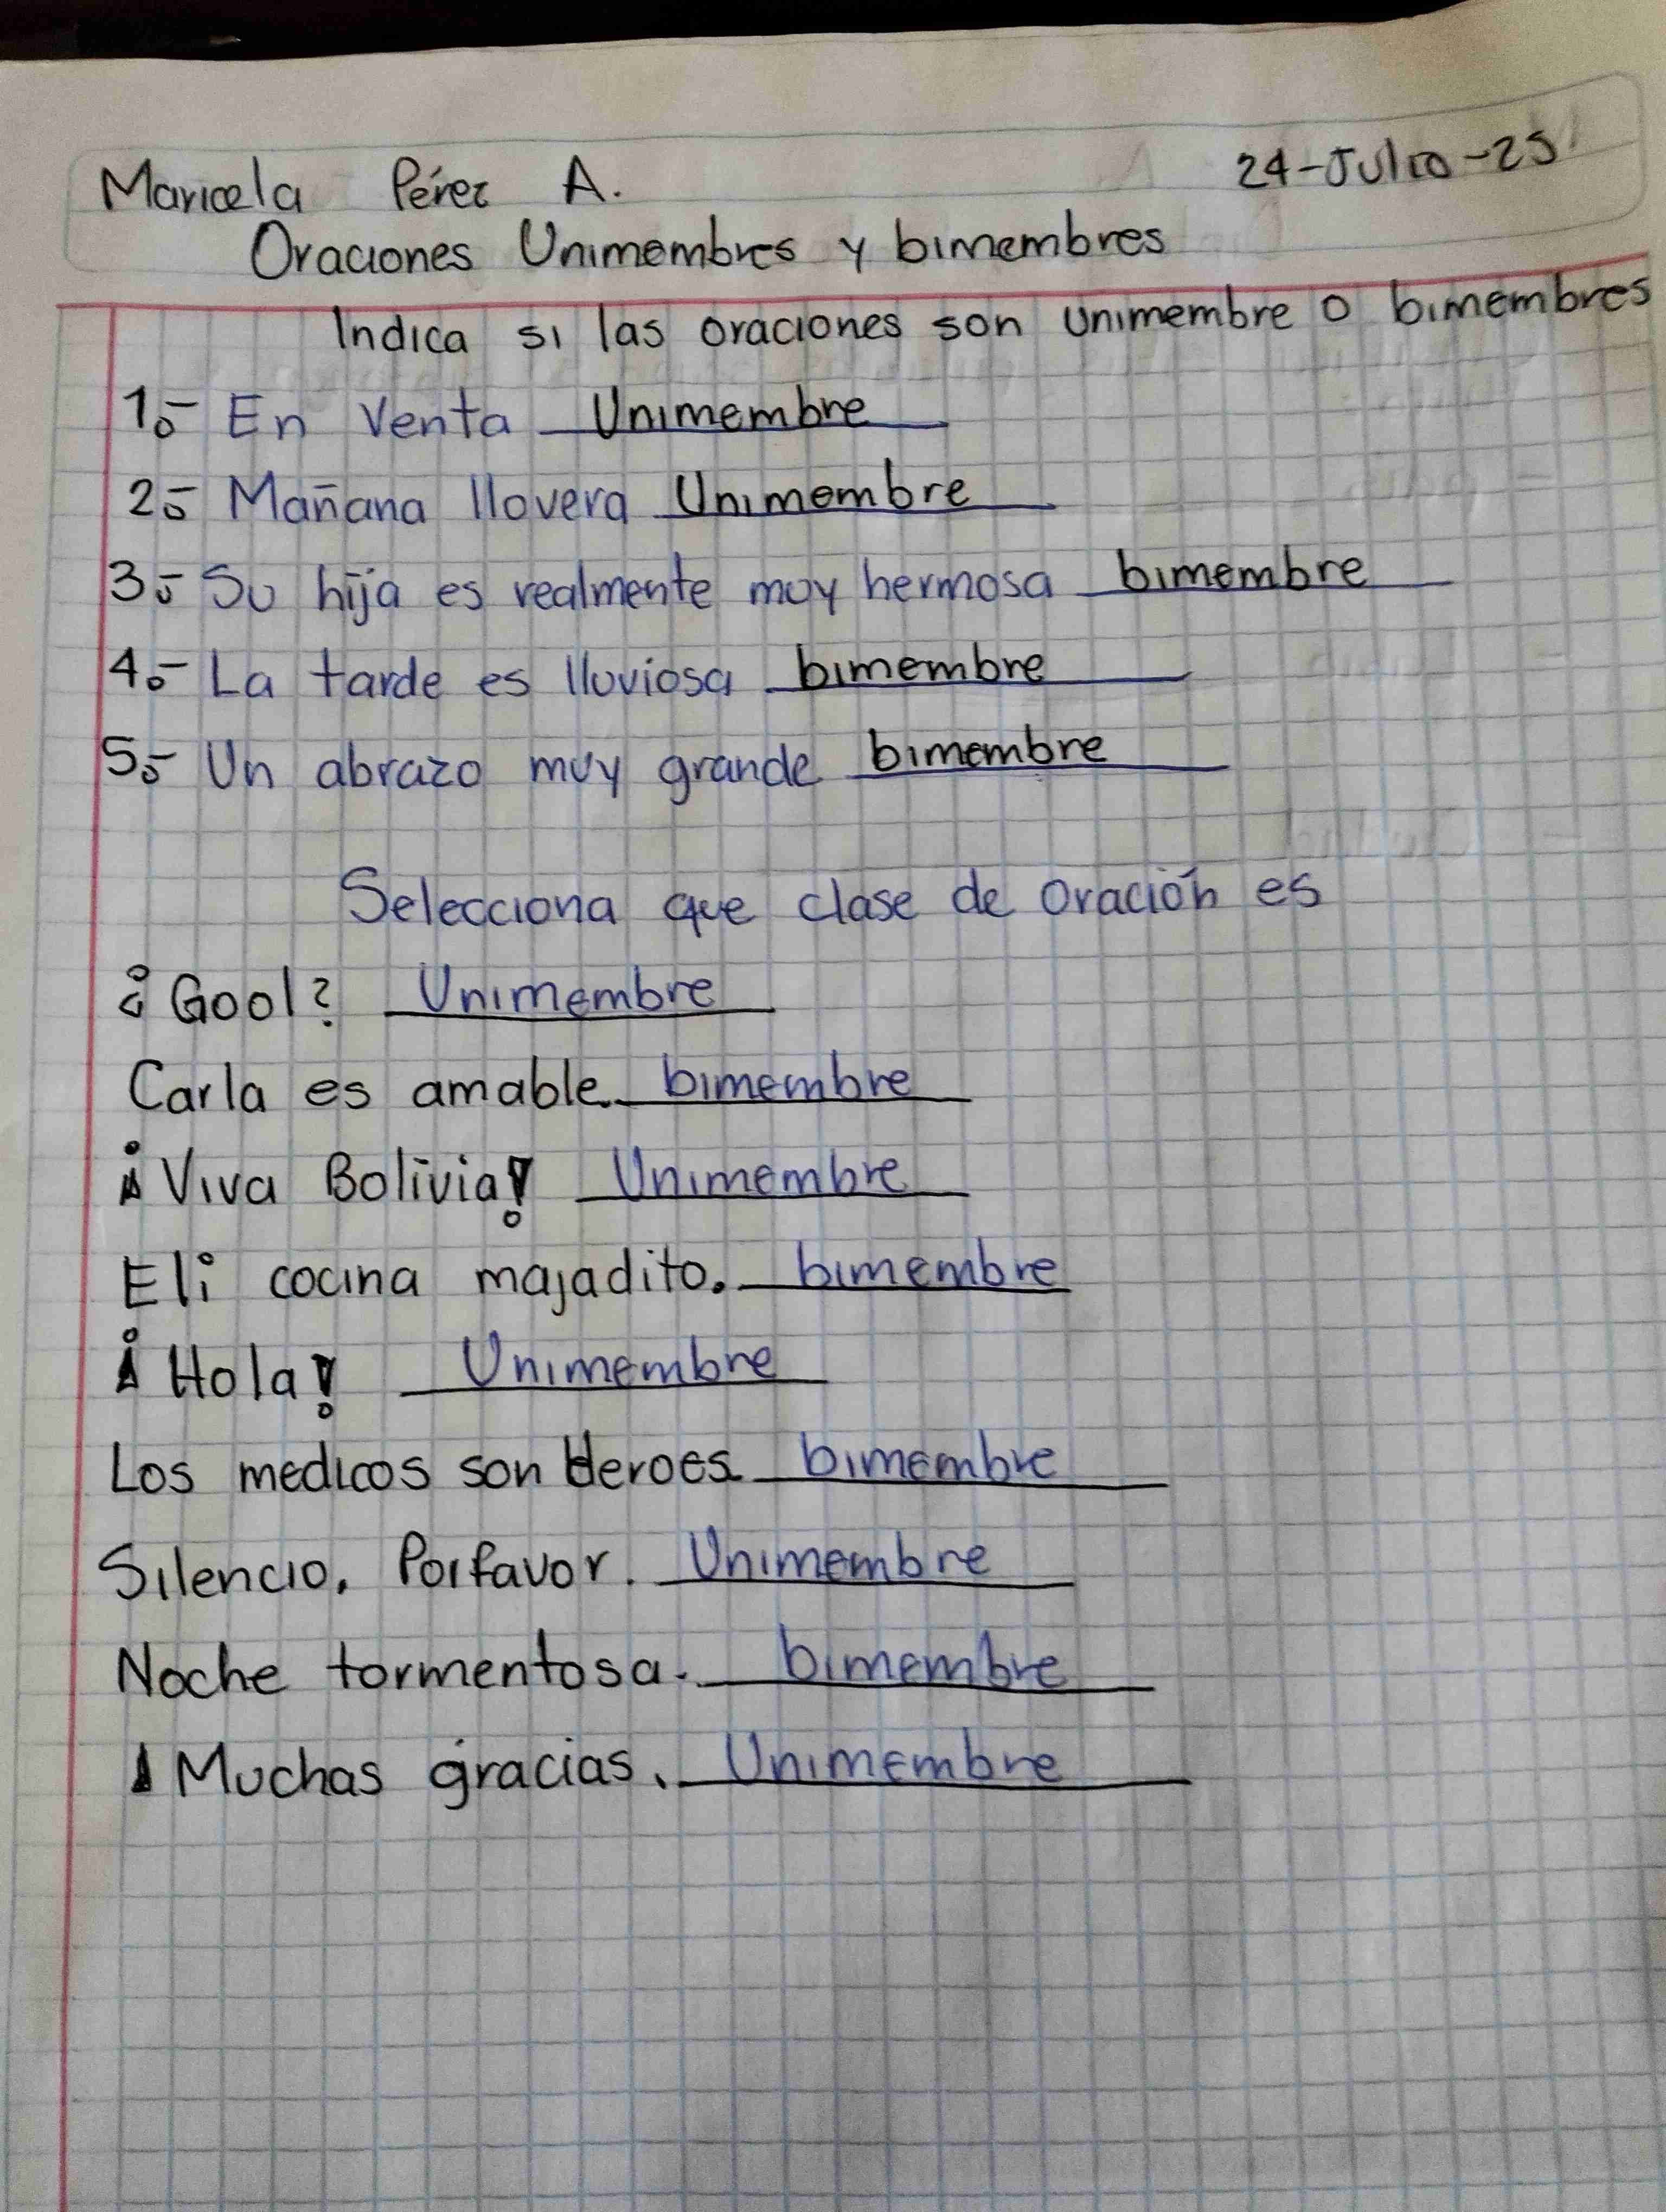 Maricela Pérez A. 24-Julio-25
Oraciones Unimembres y bimembres
Indica si las oraciones son unimembre o bimembres
1.- En Venta Unimembre
2.- Mañana llovera Unimembre
3.- Su hija es realmente muy hermosa bimembre
4.- La tarde es lluviosa bimembre
5.- Un abrazo muy grande bimembre
Selecciona que clase de oración es
¿Gool? Unimembre
Carla es amable. bimembre
¡Viva Bolivia! Unimembre
Eli cocina majadito. bimembre
¡Hola! Unimembre
Los medicos son Heroes. bimembre
Silencio, Porfavor. Unimembre
Noche tormentosa. bimembre
¡Muchas gracias. Unimembre